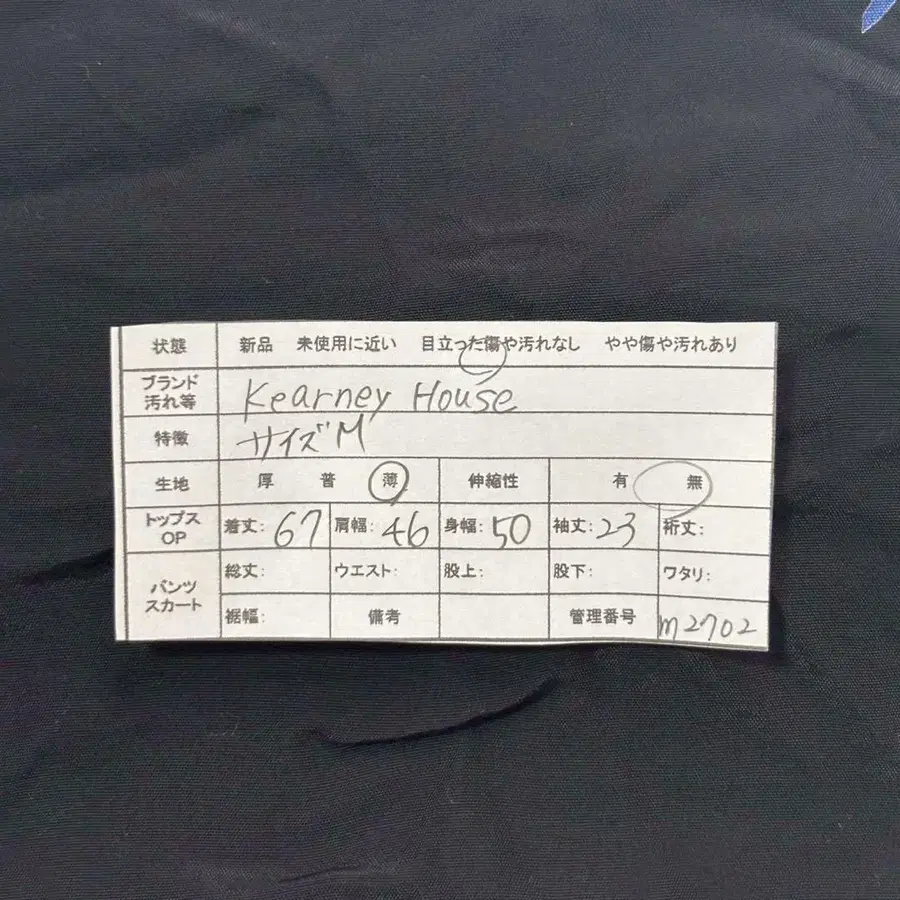 状態 新品 未使用に近い 目立った傷や汚れなし やや傷や汚れあり
ブランド
汚れ等 Kearney House
特徴 サイズM
生地 厚 普 薄 伸縮性 有 無
トップス
OP 着丈: 67 肩幅: 46 身幅: 50 袖丈: 23 裄丈:
パンツ
スカート 総丈: ウエスト: 股上: 股下: ワタリ:
裾幅: 備考 管理番号 m2702